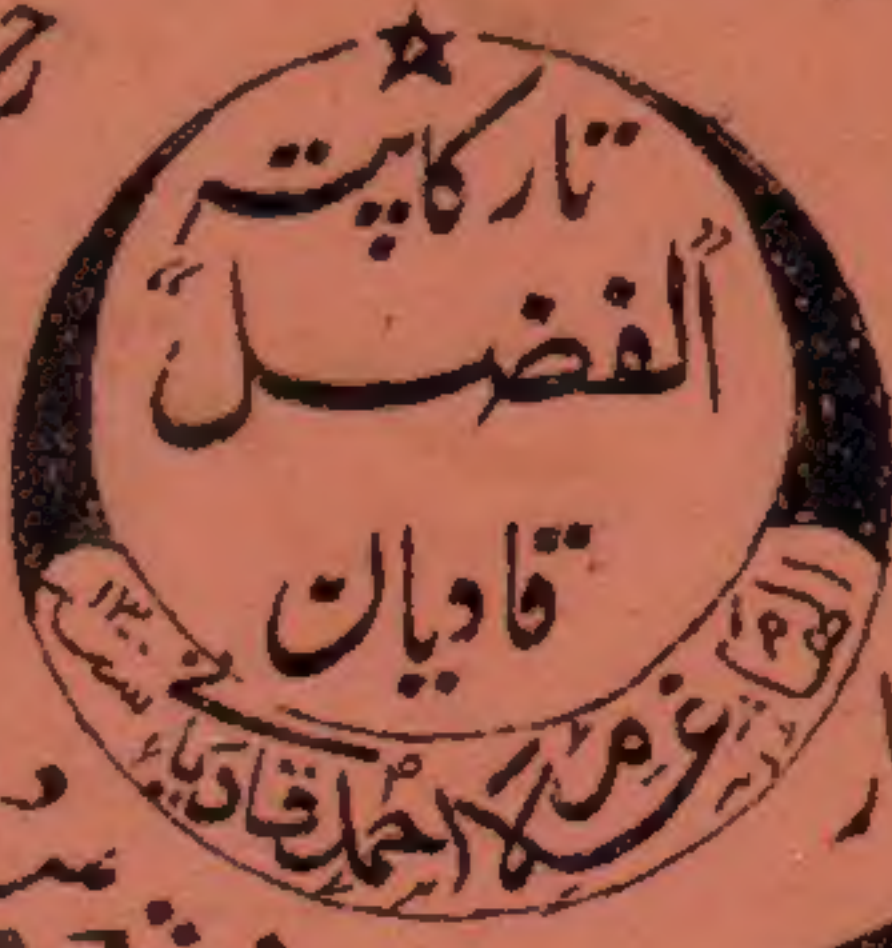 تار کا پتہ
"الفضل"
قادیان
غلام احمد قادیانی
۱۳۰۰